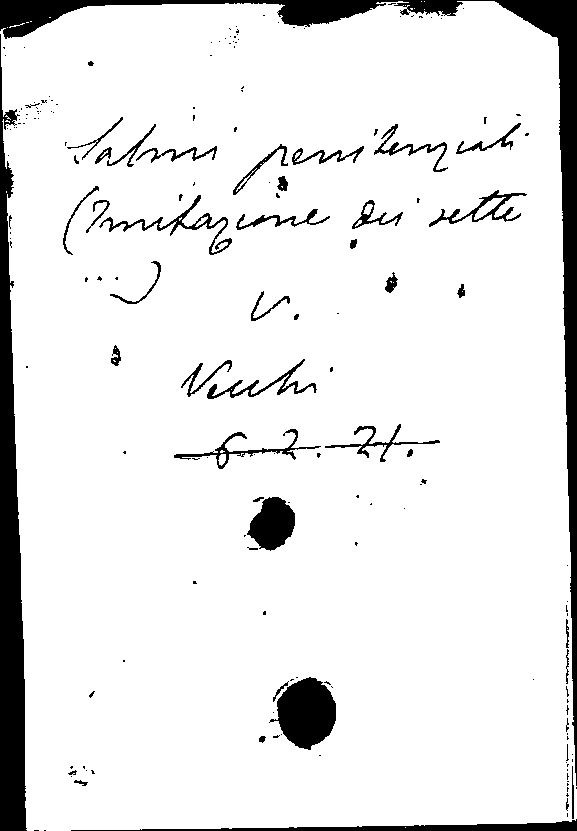 Salmi penitenziali
(Imitazione dei sette
...)
V.
Vecchi
6.2.21.